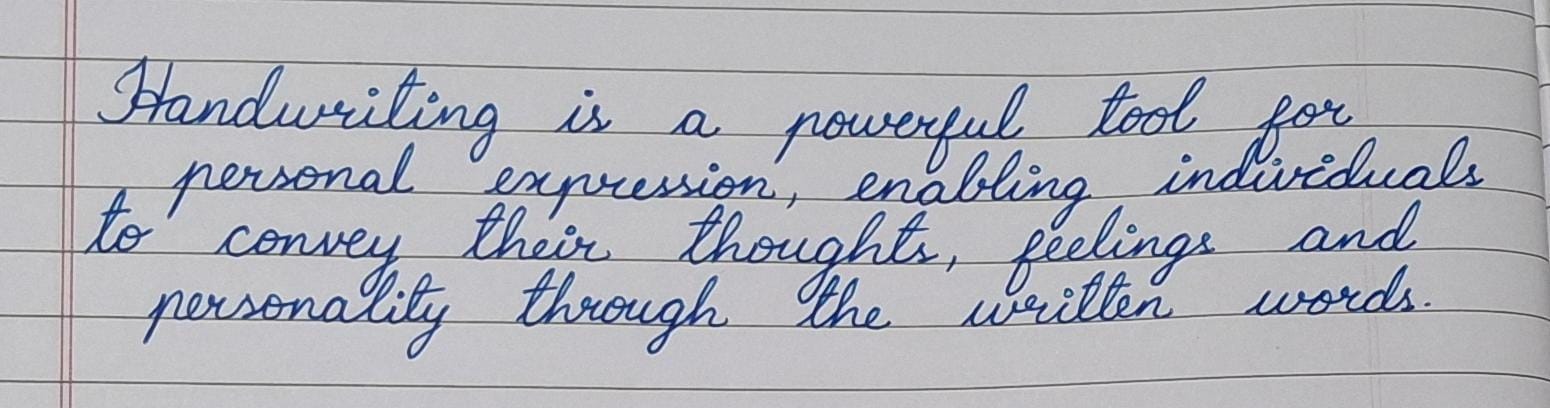 Handwriting is a powerful tool for
personal expression, enabling individuals
to convey their thoughts, feelings and
personality through the written words.